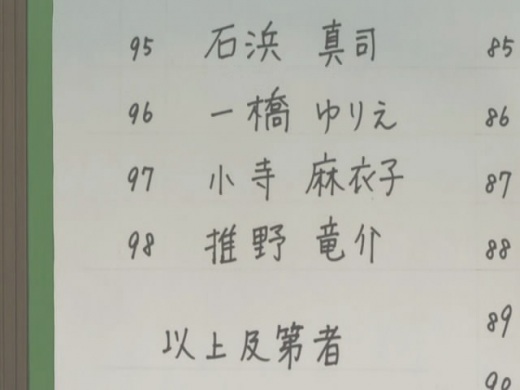 95 石浜 真司
96 一橋 ゆりえ
97 小寺 麻衣子
98 推野 竜介
以上及第者
85
86
87
88
89
90